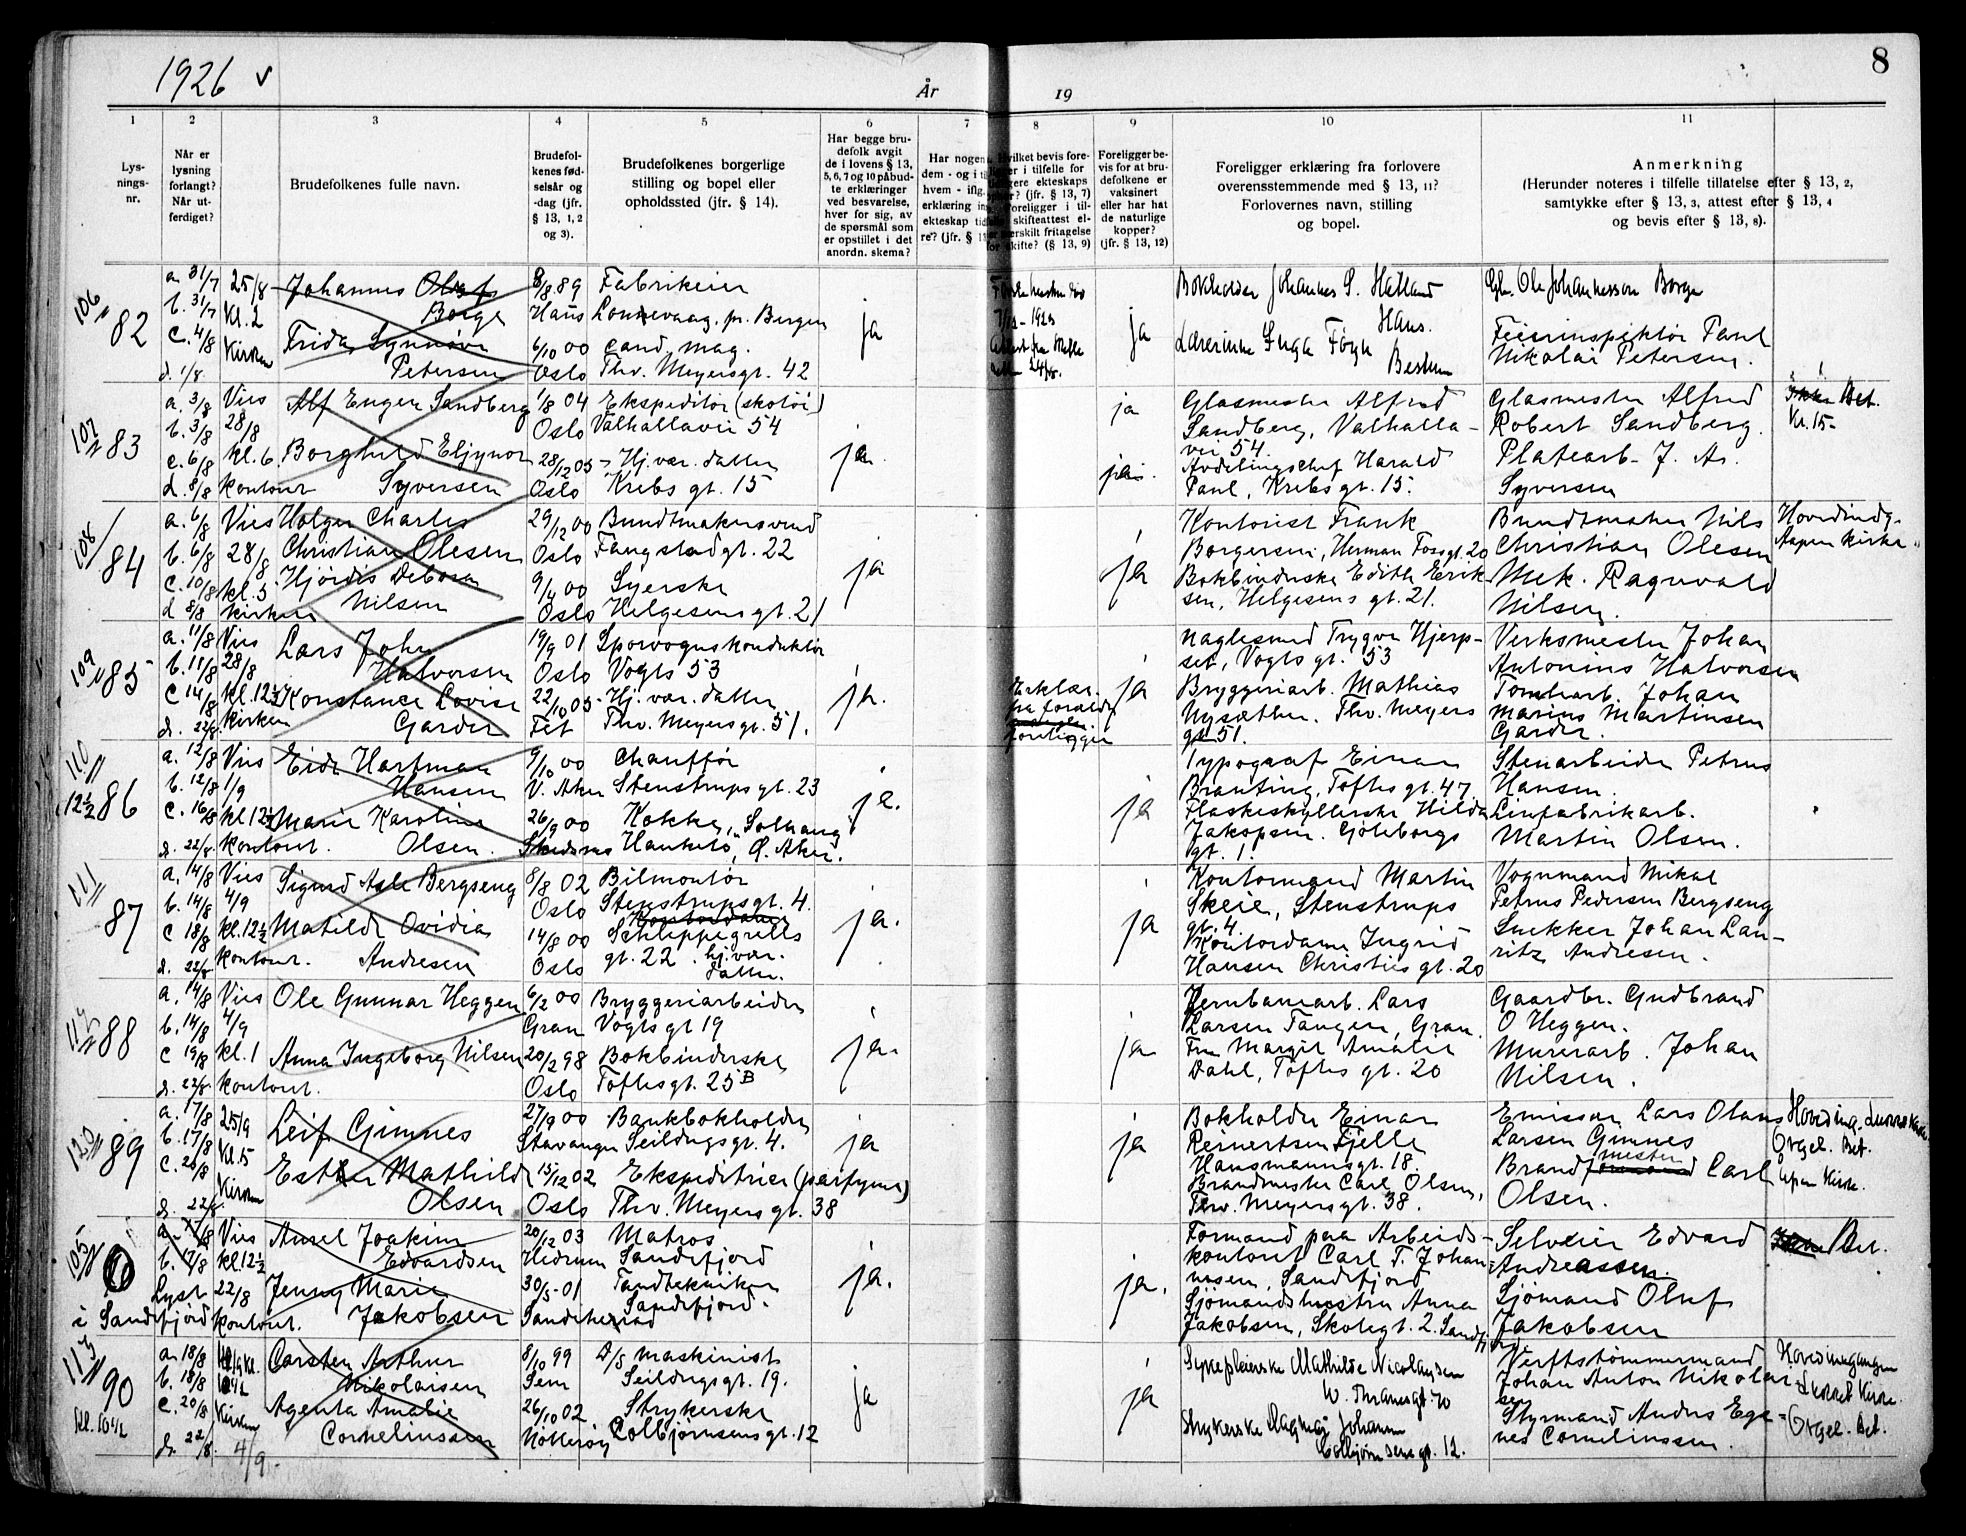 1926 v
År
19
8
1
2
3
4
5
6
7
8
9
10
11
Lys-
nings-
nr.
Når er
lysning
forlangt?
Når ut-
ferdiget?
Brudefolkenes fulle navn.
Brudefol-
kenes fød-
selsår og
-dag (jfr.
§ 13, 1, 2
og 3).
Brudefolkenes borgerlige
stilling og bopel eller
opholdssted (jfr. § 14).
Har begge bru-
defolk avgit
de i lovens § 13,
5, 6, 7 og 10 påbud-
te erklæringer
ved besvarelse,
hver for sig, av
de spørsmål som
er opstillet i det
anordn. skema?
Har nogen
dem - og i
hvem - ifg.
erklæring
ekteskap
re? (jfr. §
Hvilket bevis fore-
i tilfelle for
ekteskaps
(jfr. § 13, 7)
Foreligger i til-
skifteattest el-
særskilt fritagelse
skifte? (§ 13, 9)
Foreligger be-
vis for at bru-
defolkene er
vaksinert
eller har hat
de naturlige
kopper?
(jfr. § 13, 12)
Foreligger erklæring fra forlovere
overensstemmende med § 13, 11?
Forlovernes navn, stilling
og bopel.
Anmerkning
(Herunder noteres i tilfelle tillatelse efter § 13, 2,
samtykke efter § 13, 3, attest efter § 13, 4
og bevis efter § 13, 8).
106
82
a. 31/7 25/8
b. 31/7 Kl. 2
c. 4/8 Kirken
d. 1/8
Johannes Olaf
Borge
Frida Synnøve
Petersen
8/8 89
Haus
6/10 00
Oslo
Fabrikeier
Lonnevaag, pr. Bergen
cand. mag.
Thv. Meyersgt. 42
ja
ja
Bokholder Johannes S. Hatland
Haus.
Lærerinne Inga Föyn
Bestum
Gbr. Ole Johannesson Borge
Feierinspektör Paul
Nikolai Petersen.
107
83
a. 3/8 Vies
b. 3/8 28/8
c. 6/8 kl. 6
d. 8/8 kontoret
Alf Enger Sandberg
Borghild Eljynor
Syversen
1/8 04
Oslo
28/12 05
Oslo
Ekspeditör (skotöi)
Valhallavei 54
Hj. vær. datter
Krebs gt. 15
ja.
ja
ja.
Glasmester Alfred
Sandberg, Valhalla-
vei 54.
Avdelingschef Harald
Paul, Krebsgt. 15.
Glasmester Alfred
Robert Sandberg.
Platearb. J. Ar.
Syversen
Ikke Bet.
Kr. 15-
108
84
a. 6/8 Vies
b. 6/8 28/8
c. 10/8 kl. 5
d 8/8 kirken
Holger Charles
Christian Olesen
Hjördis Debora
Nilsen
29/12 00
Oslo
9/4 00
Oslo
Bundtmakersvend
Fougstadgt. 22
Syerske
Helgesens gt. 21
ja
ja
Kontorist Frank
Borgersen, Herman Fossgt. 20
Bokbinderske Edith Erik-
sen, Helgesens gt. 21.
Bundtmaker Nils
Christian Olesen
Mek. Ragnvald
Nilsen.
Hovedindg.
Aapen kirke
109
85
a. 11/8 Vies
b. 11/8 28/8
c 14/8 kl. 12½
d. 22/8. kirken
Lars John
Halvorsen
Konstance Lovise
Garder
19/9 01
Oslo
22/10 05
Fet
Sporvognskonduktör
Vogts 53
Hj. vær. datter
Thv. Meyersgt. 51.
ja.
Erklær.
fra foreldre
foreligger
ja
Naglesmed Trygve Hjerp-
set, Vogts gt. 53
Bryggeriarb. Mathias
Nysæther. Thv. Meyers
gt. 51.
Verksmester Johan
Antonius Halvorsen
Tomtearb. Johan
Marius Martinsen
Garder.
110
12½ 86
a. 12/8 Vies
b. 12/8 1/9
c. 16/8 kl. 12½
d. 22/8. kontoret.
Eide Hartman
Hansen
Marie Karoline
Olsen.
9/10 00
V. Aker
26/9 00
Skedsmo
Chauffør
Stenstrups gt. 23
Kokke, "Solhaug"
Hauketo, Ö. Aker.
ja.
ja
Typograf Einar
Branting, Toftes gt. 47
Flaskeskyllerske Hilda
Jakopsen. Göteborgs
gt. 1.
Stenarbeider Petrus
Hansen.
Limfabrikarb.
Martin Olsen.
111
87
a. 14/8 Vies
b. 14/8 4/9
c 18/8 kl. 12½
d. 22/8 kontoret.
Sigurd Asle Bergseng
Matilde Ovidia
Andresen
8/8 02
Oslo
14/8 00
Oslo
Bilmontör
Stenstrupsgt. 4.
Kontordame
Schleppegrells
gt. 22. hj. vær.
datter.
ja.
ja
Kontormand Martin
Skeie, Stenstrups
gt. 4.
Kontordame Ingrid
Hansen Christies gt. 20
Vognmand Mikal
Petrus Pedersen Bergseng
Snekker Johan Lau-
ritz Andresen.
88
a. 14/8 Vies
b. 14/8 4/9
c 19/8 kl. 1
d. 22/8. kontoret.
Ole Gunnar Heggen
Anna Ingeborg Nilsen
6/2 00
Gran
20/2 98
Oslo
Bryggeriarbeider
Vogts gt 19
Bokbinderske
Toftes gt. 25 B
ja.
ja
Jernbanearb. Lars
Larsen Tangen, Gran.
Fru Margit Amalie
Dahl, Toftes gt. 20
Gaardbr. Gudbrand
O Heggen.
Murerarb. Johan
Nilsen.
120
89
a. 17/8 25/9
b. 17/8 Kl. 5
c. 20/8 Kirken
d. 22/8
Leif Gimnes
Esther Mathilde
Olsen
27/9 00
Stavanger
15/12 02
Oslo
Bankbokholder
Seildugsgt. 4.
Ekspeditrice (parfyme)
Thv. Meyers gt. 38
ja
ja
Bokholder Einar
Reinertsen Fjelle
Hausmannsgt. 18.
Brandmester Carl Olsen,
Thv. Meyersgt. 38.
Emissær Lars Olaus
Larsen Gimnes
mester
Brandformand Carl
Olsen.
Hovedinng.
Orgel. Bet.
Aapen Kirke.
105
0
a. 17/8 Vies
b. 17/8 kl. 12½
Lyst 22/8
i Sandefjord kontoret.
Aksel Joakim
Edvardsen
Jenny Marie
Jakobsen
20/12 03
Hedrum
30/5-01
Sandeherad
Matros
Sandefjord
Tandtekniker
Sandefjord.
ja.
ja.
Formand paa Arbeids-
kontoret Carl T. Johan-
nesen, Sandefjord
Sjömandshustru Anna
Jakobsen, Skolegt. 2. Sandefj
Selveier Edvard
Andreassen.
Sjömand Oluf
Jakobsen
Ikke Bet.
113
90
Kl. 10½
a. 18/8
b. 18/8
c. 20/8 Kirken
d. 22/8. 4/9.
Carsten Arthur
Nikolaisen
Agenta Amalie
Corneliussen
8/10 99
Sem
26/10 02
Nötteröy
D/S maskinist
Seildugsgt. 19.
Strykerske
Colbjörnsensgt. 12
ja
ja
Sykepleierske Mathilde Nicolaysen
W. Thranesgt. 70
Strykerske Dagmar Johansen
Colbjörnsens gt. 12.
Verftstömmermand
Johan Anton Nikolai-
sen
Styrmand Anders Ege-
nes Corneliussen.
Hovedinngangen
Orgel. Bet.